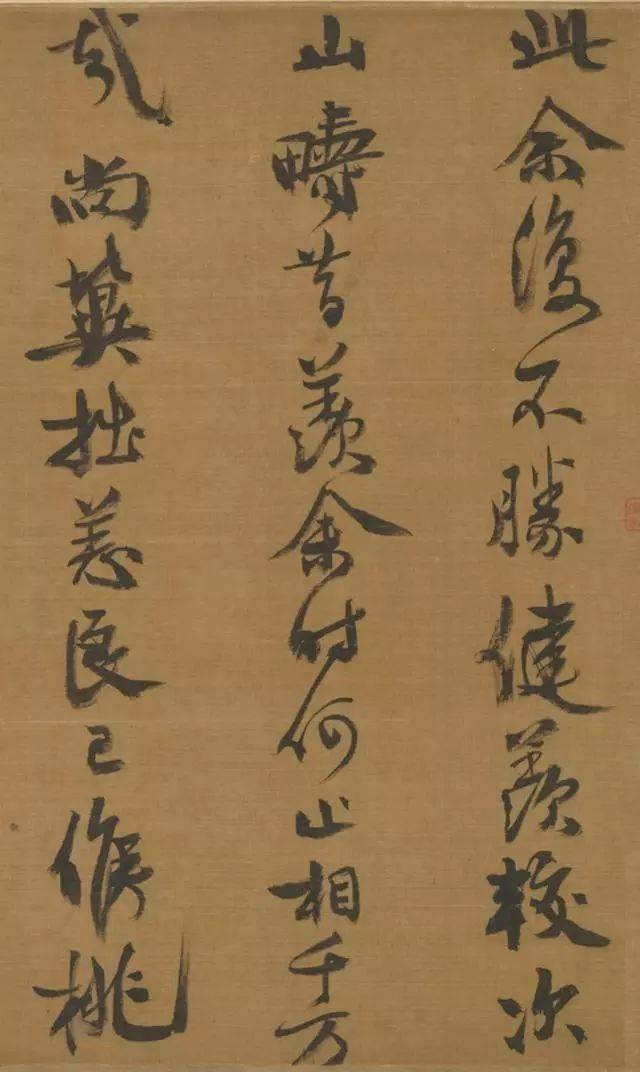 此余復不勝健羨較次
山疇昔羨余時何止相千万
哉尚冀拙恙良已俟桃